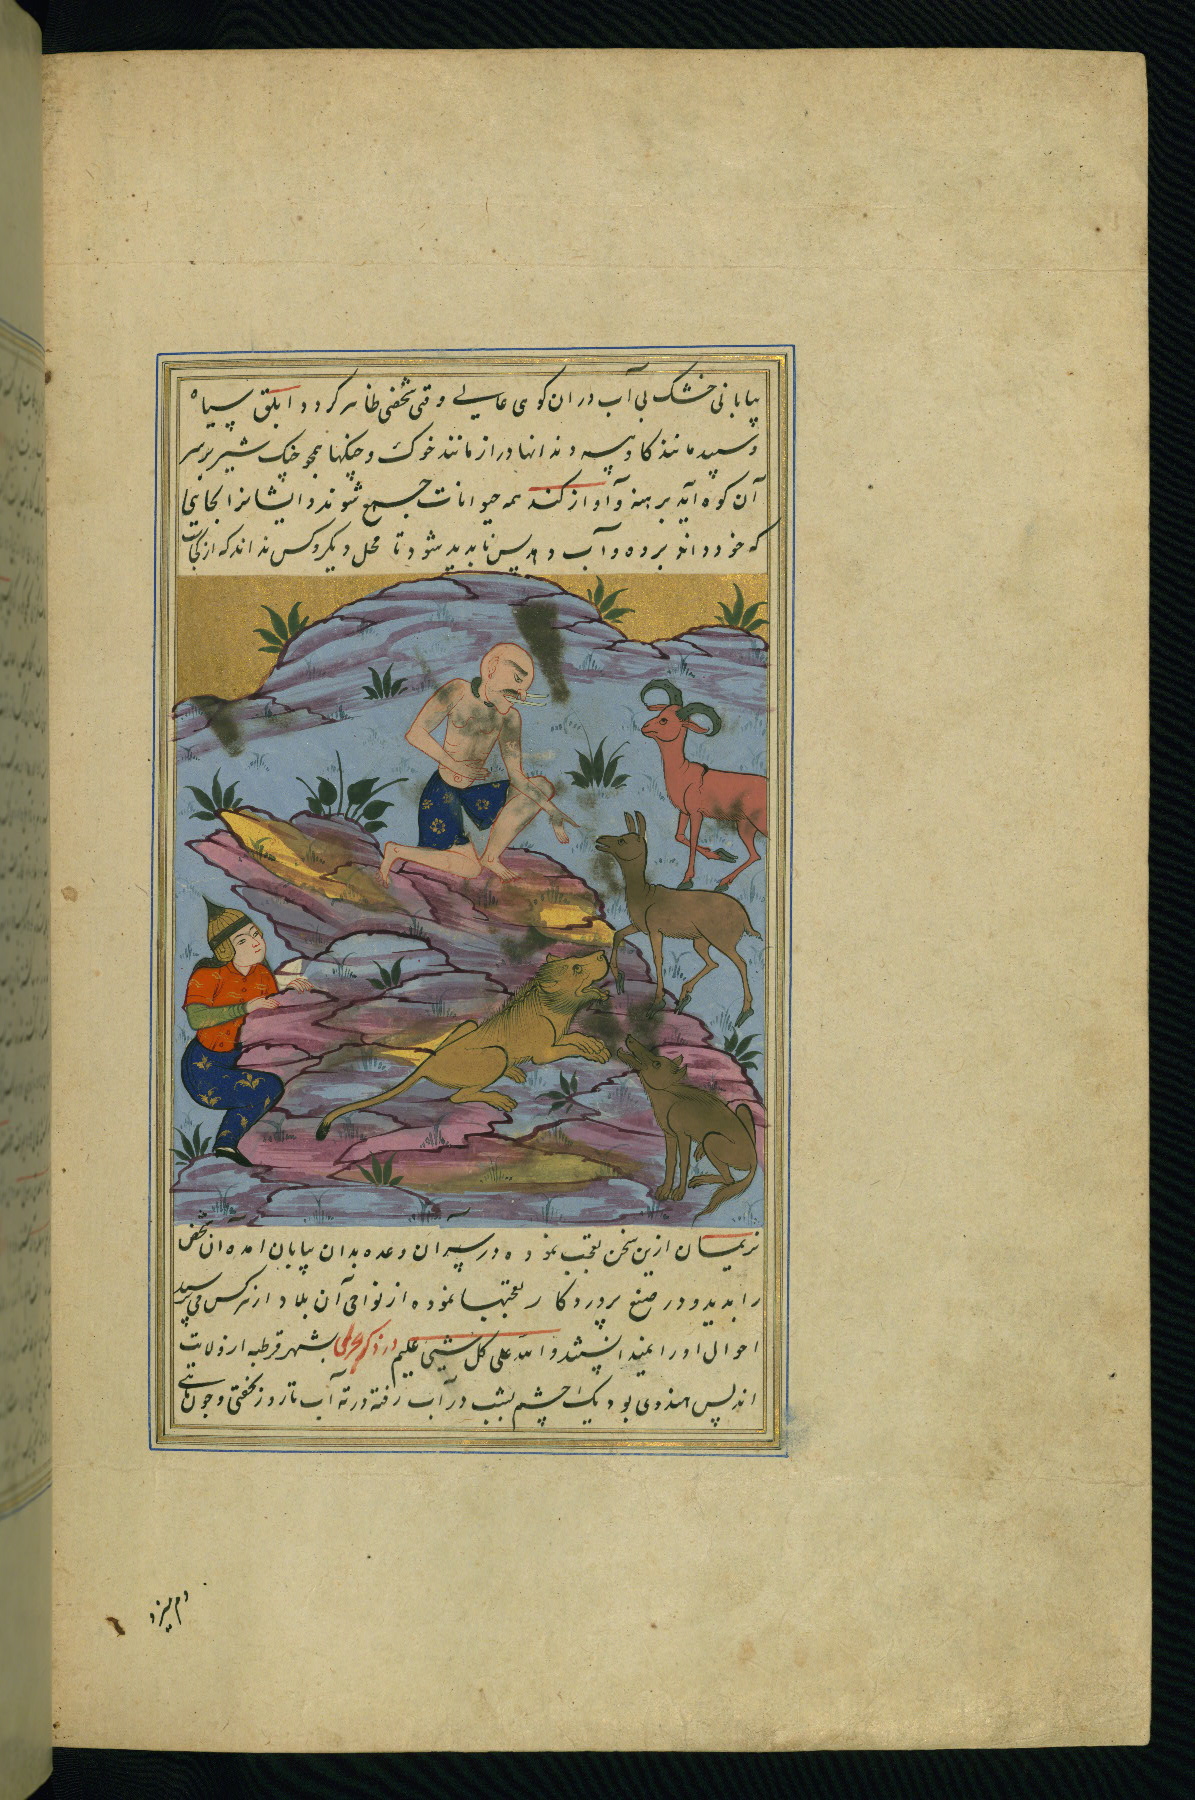 بیابانی خشک بی آب در ان کوی عالی وقتی شخصی ظاهر کردد ابلق سیاه
وسپید مانند کاو پیسه دندانها دراز مانند خوک وچنکها همجو چنک شیر بر سر
آن کوه آید برهنه وآواز کند همه حیوانات جمع شوند وایشانرا بجایی
که خود داند برده وآب دهد پس نابدید شود تا محل دیکر وکس نداند که از کجاست
نریمان ازین سخن تعجب نموده در سر آن وعده بدان بیابان امده آن شخص
را بدید ودر صنع پروردکار تعجبها نموده از نواحی آن بلاد از هر کس می پرسید
احوال اورا نمیدانستند والله علی کل شیئی علیم در ذکر بشهر قرطبه از ولایت
اندلس هندوی بود یک چشم بشب در آب رفته در ته آب تا روز بخفتی وچون